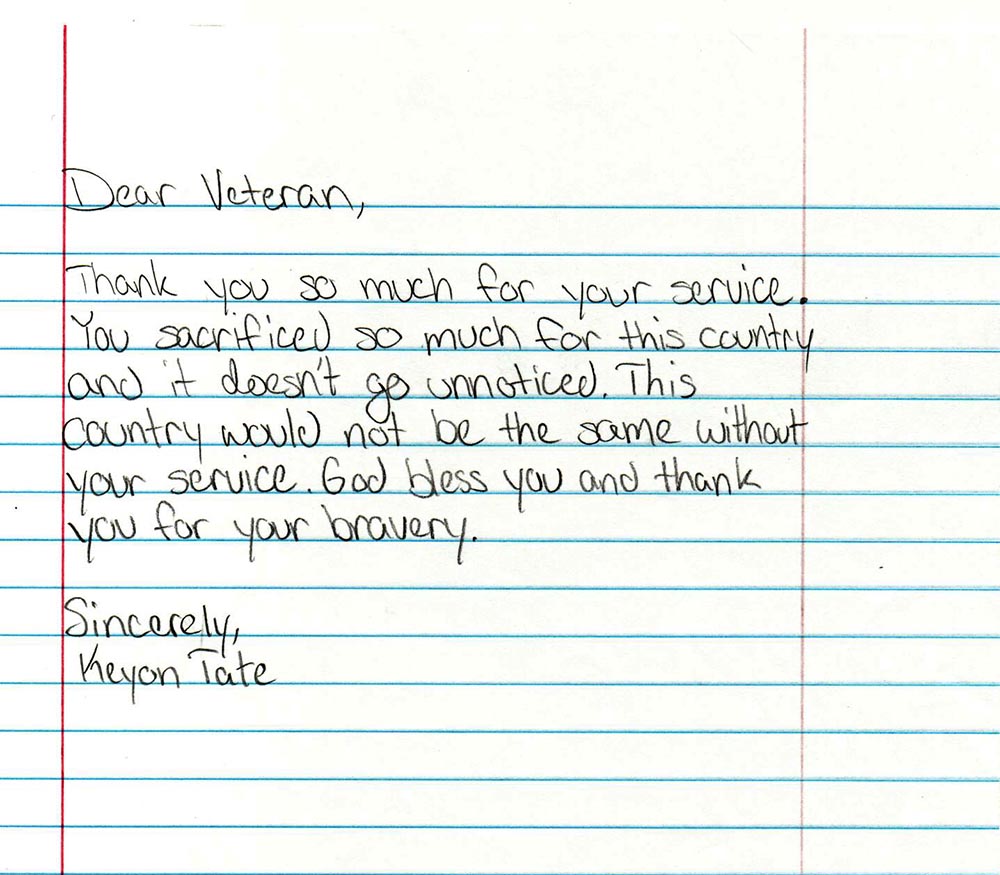 Dear Veteran,
Thank you so much for your service.
You sacrificed so much for this country
and it doesn't go unnoticed. This
country would not be the same without
your service. God bless you and thank
you for your bravery.
Sincerely,
Keyon Tate